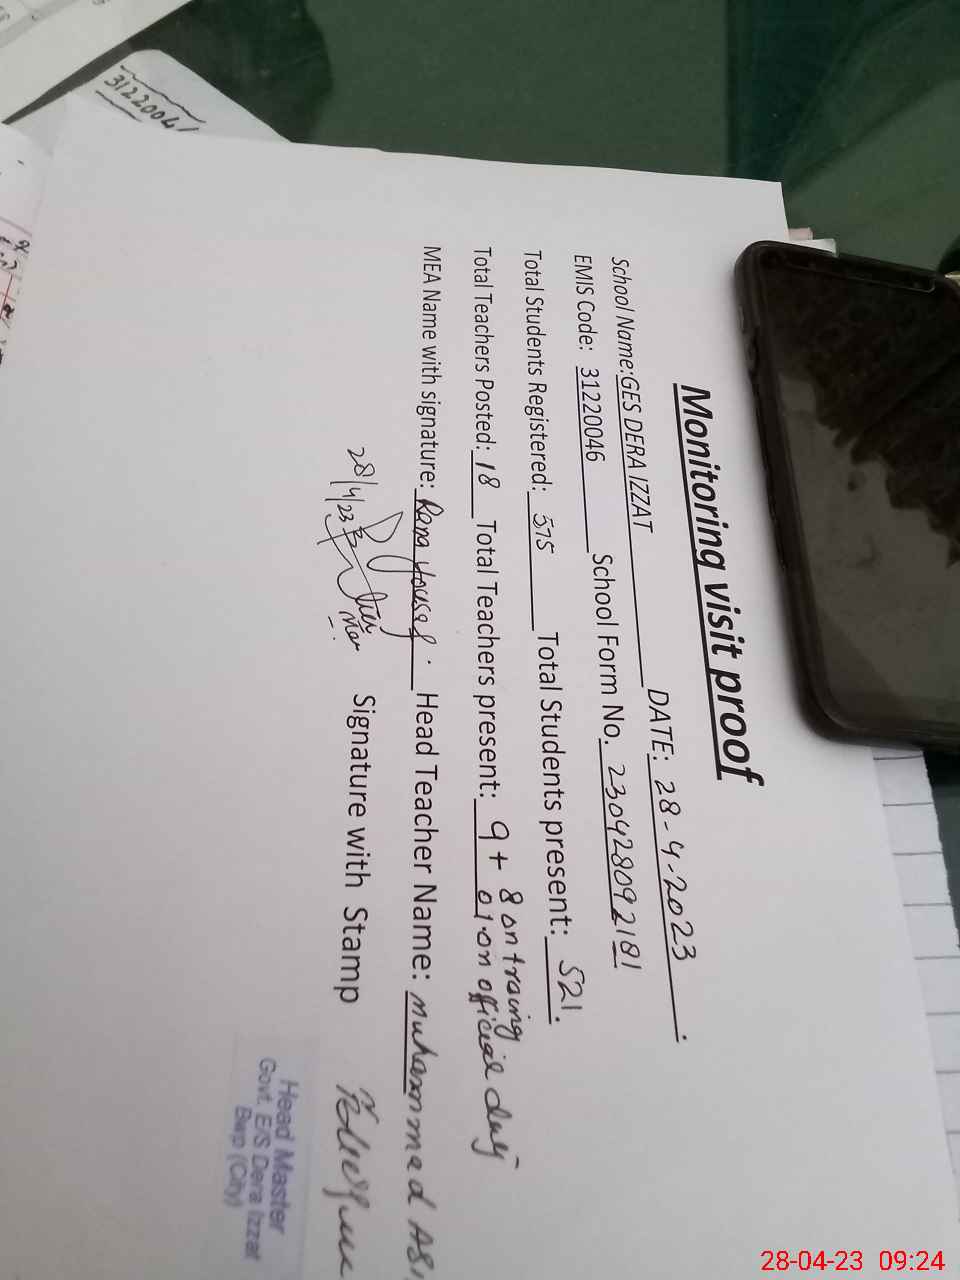 Monitoring visit proof
School Name:GES DERA IZZAT DATE: 28-4-2023.
EMIS Code: 31220046 School Form No. 230428092181
Total Students Registered: 575 Total Students present: 521.
Total Teachers Posted: 18 Total Teachers present: 9+ 8 on traing
01 on official duty
MEA Name with signature: Rana Yousaf. Head Teacher Name: Muhammad
28/4/23
Signature with Stamp
Head Master
Govt. E/S Dera Izzat
Bwp (City)
3122004
28-04-23 09:24